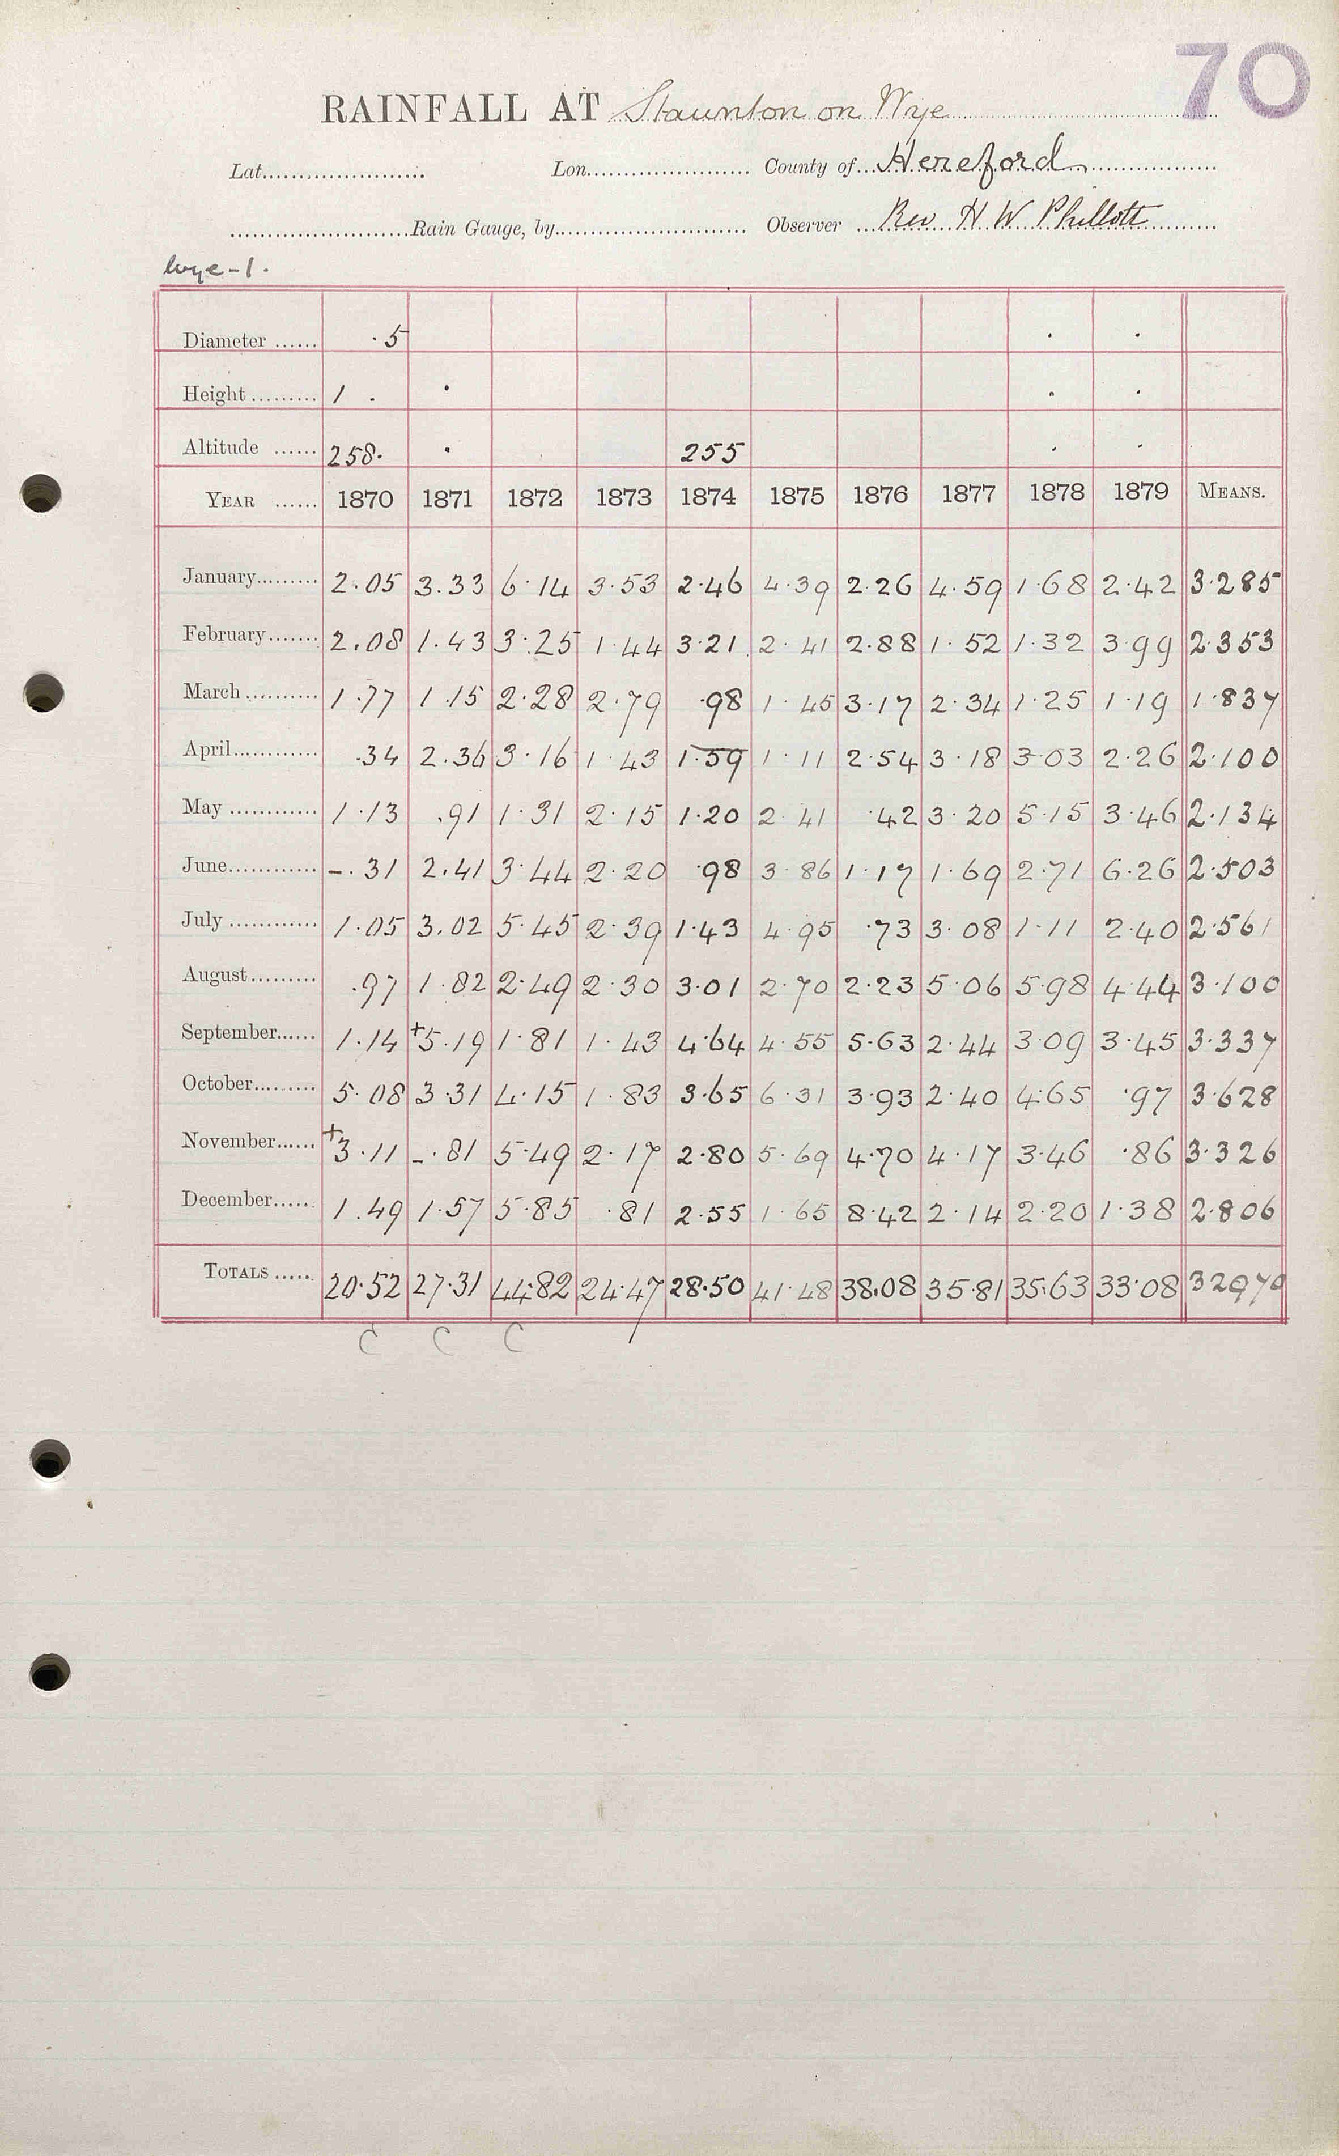 70
RAINFALL AT Staunton on Wye
Lat. Lon. County of Hereford
Rain Gauge, by Observer Rev H W Phillott
Wye-1.
Diameter ...... ·5
Height ......... 1 .
Altitude ...... 258. 255
YEAR ...... 1870 1871 1872 1873 1874 1875 1876 1877 1878 1879 MEANS.
January......... 2.05 3.33 6·14 3·53 2·46 4·39 2·26 4·59 1·68 2·42 3·285
February....... 2.08 1.43 3·25 1·44 3·21 2·41 2·88 1·52 1·32 3·99 2·353
March .......... 1·77 1·15 2·28 2·79 ·98 1·45 3·17 2·34 1·25 1·19 1·837
April............ ·34 2.36 3·16 1·43 1·59 1·11 2·54 3·18 3·03 2·26 2·100
May ............ 1·13 .91 1·31 2·15 1·20 2·41 ·42 3·20 5·15 3·46 2·134
June............ -.31 2.41 3·44 2·20 ·98 3·86 1·17 1·69 2·71 6·26 2·503
July ............ 1·05 3.02 5·45 2·39 1·43 4·95 ·73 3·08 1·11 2·40 2·561
August......... .97 1.82 2·49 2·30 3·01 2·70 2·23 5·06 5·98 4·44 3·100
September...... 1.14 +5.19 1·81 1·43 4·64 4·55 5·63 2·44 3·09 3·45 3·337
October......... 5·08 3·31 4·15 1·83 3·65 6·31 3·93 2·40 4·65 ·97 3·628
November...... +3·11 -·81 5·49 2·17 2·80 5·69 4·70 4·17 3·46 ·86 3·326
December...... 1.49 1·57 5·85 ·81 2·55 1·65 8·42 2·14 2·20 1·38 2·806
TOTALS ...... 20·52 27·31 44·82 24·47 28·50 41·48 38·08 35·81 35·63 33·08 32970
C C C